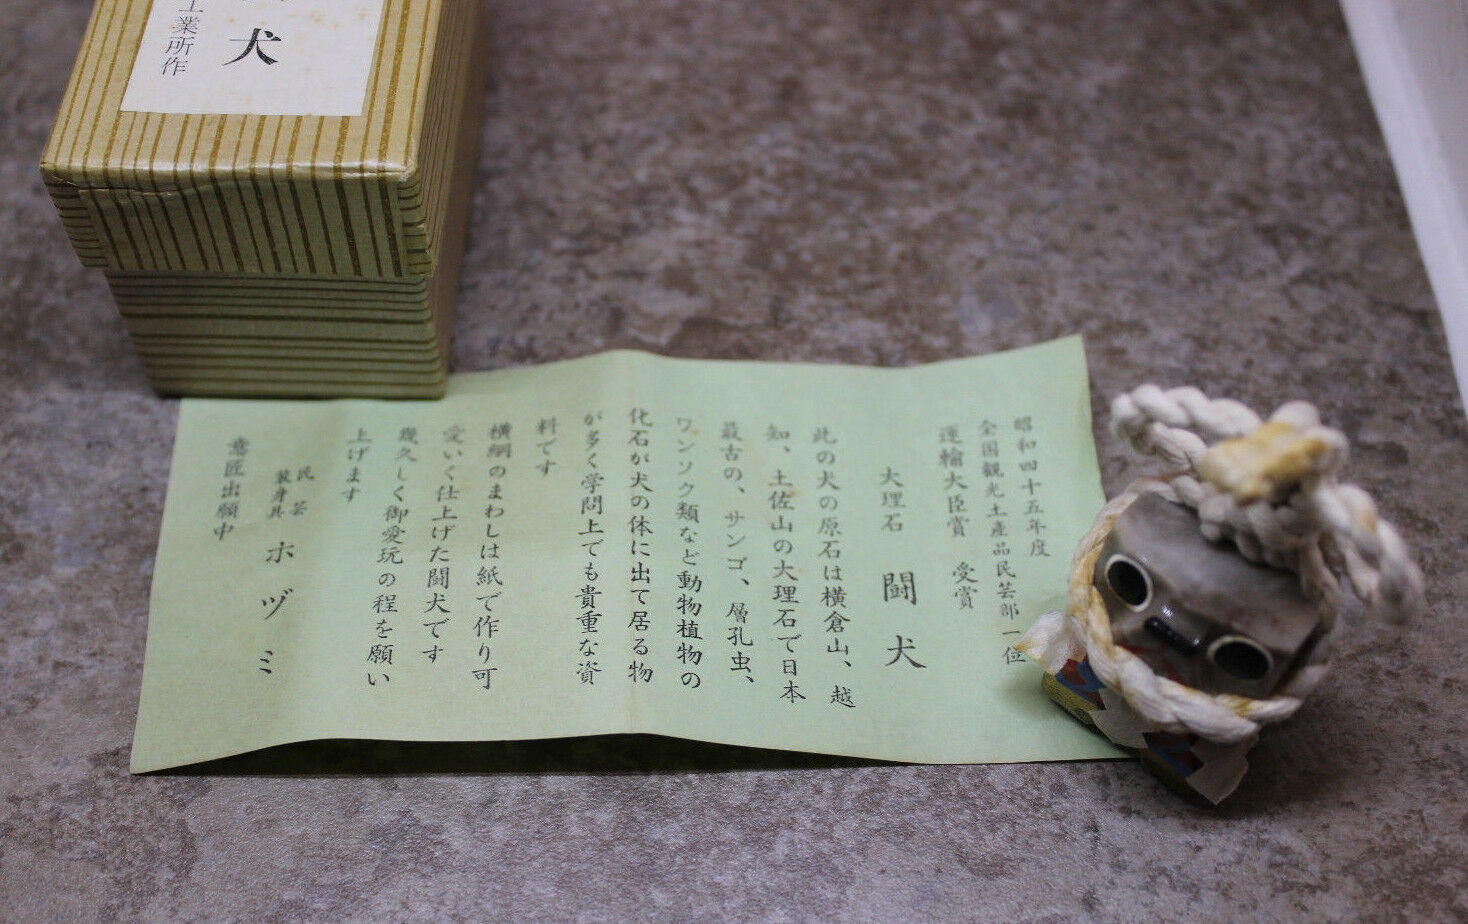 犬
工業所作
昭和四十五年度
全国観光土産品民芸部一位
運輸大臣賞 受賞
大理石 闘犬
此の犬の原石は横倉山、越
知、土佐山の大理石で日本
最古の、サンゴ、層孔虫、
ワンソク類など動物植物の
化石が犬の体に出て居る物
が多く学問上でも貴重な資
料です
横綱のまわしは紙で作り可
愛いく仕上げた闘犬です
幾久しく御愛玩の程を願い
上げます
民芸
装身具
ホヅミ
意匠出願中